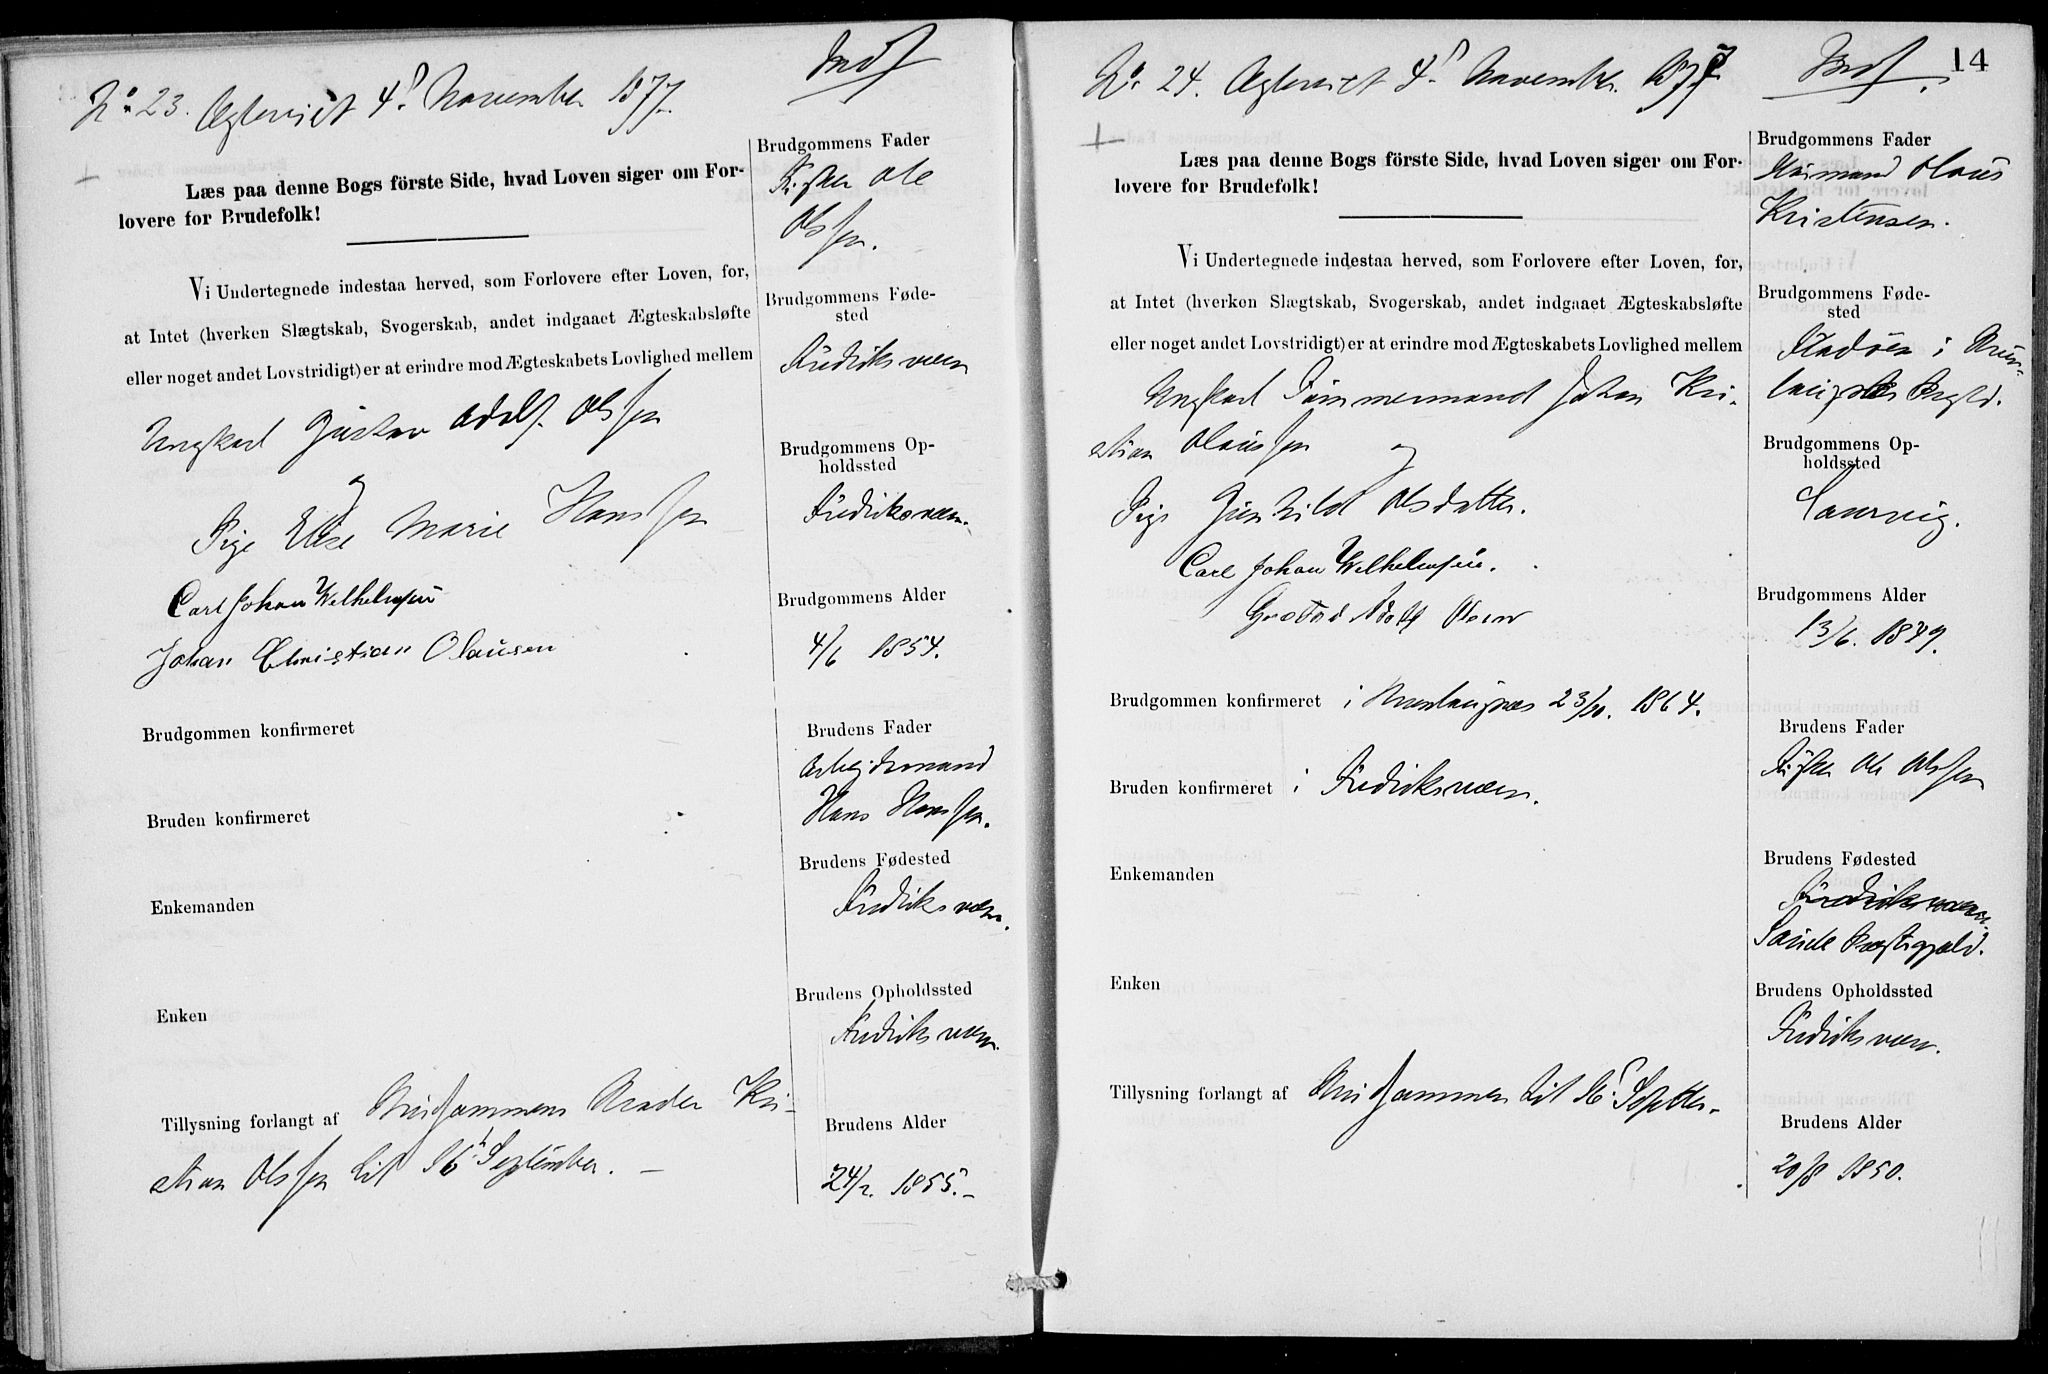 No 23. Ægteviet 4d November 1877.
Indf
Læs paa denne Bogs förste Side, hvad Loven siger om For-
lovere for Brudefolk!
Vi Undertegnede indestaa herved, som Forlovere efter Loven, for,
at Intet (hverken Slægtskab, Svogerskab, andet indgaaet Ægteskabsløfte
eller noget andet Lovstridigt) er at erindre mod Ægteskabets Lovlighed mellem
Ungkarl Gustav Adolf Olssen
og
Pige Elise Marie Hanssen
Carl Johan Wilhelmsen
Johan Christian Olausen
Brudgommen konfirmeret
Bruden konfirmeret
Enkemanden
Enken
Tillysning forlangt af Brudgommens Broder Kri-
stian Olssen til 16 September.
Brudgommens Fader
Fisker Ole
Olssen.
Brudgommens Føde-
sted
Fredriksværn
Brudgommens Op-
holdssted
Fredriksværn.
Brudgommens Alder
4/6 1854.
Brudens Fader
Arbejdsmand
Hans Hanssen.
Brudens Fødested
Fredriksværn.
Brudens Opholdssted
Fredriksværn.
Brudens Alder
24/2. 1855.
No 24. Ægteviet 4d November 1877
Indf.
14
Læs paa denne Bogs förste Side, hvad Loven siger om For-
lovere for Brudefolk!
Vi Undertegnede indestaa herved, som Forlovere efter Loven, for,
at Intet (hverken Slægtskab, Svogerskab, andet indgaaet Ægteskabsløfte
eller noget andet Lovstridigt) er at erindre mod Ægteskabets Lovlighed mellem
Ungkarl Tømmermand Johan Kri-
stian Olaussen og
Pige Gunhild Olsdatter.
Carl Johan Wilhelmsen.
Gustav Adolf Olsen
Brudgommen konfirmeret i Brunlaugnæs 23/10. 1864.
Bruden konfirmeret i Fredriksværn.
Enkemanden
Enken
Tillysning forlangt af Brudgommen til 16 Septbr.
Brudgommens Fader
Husmand Olaus
Kristensen.
Brudgommens Føde-
sted
i Brun-
laugnæs Prgld.
Brudgommens Op-
holdssted
Laurvig.
Brudgommens Alder
13/6. 1849.
Brudens Fader
Fisker Ole Olssen
Brudens Fødested
Fredriksværn.
Sande Præstegjæld.
Brudens Opholdssted
Fredriksværn.
Brudens Alder
20/8 1850.